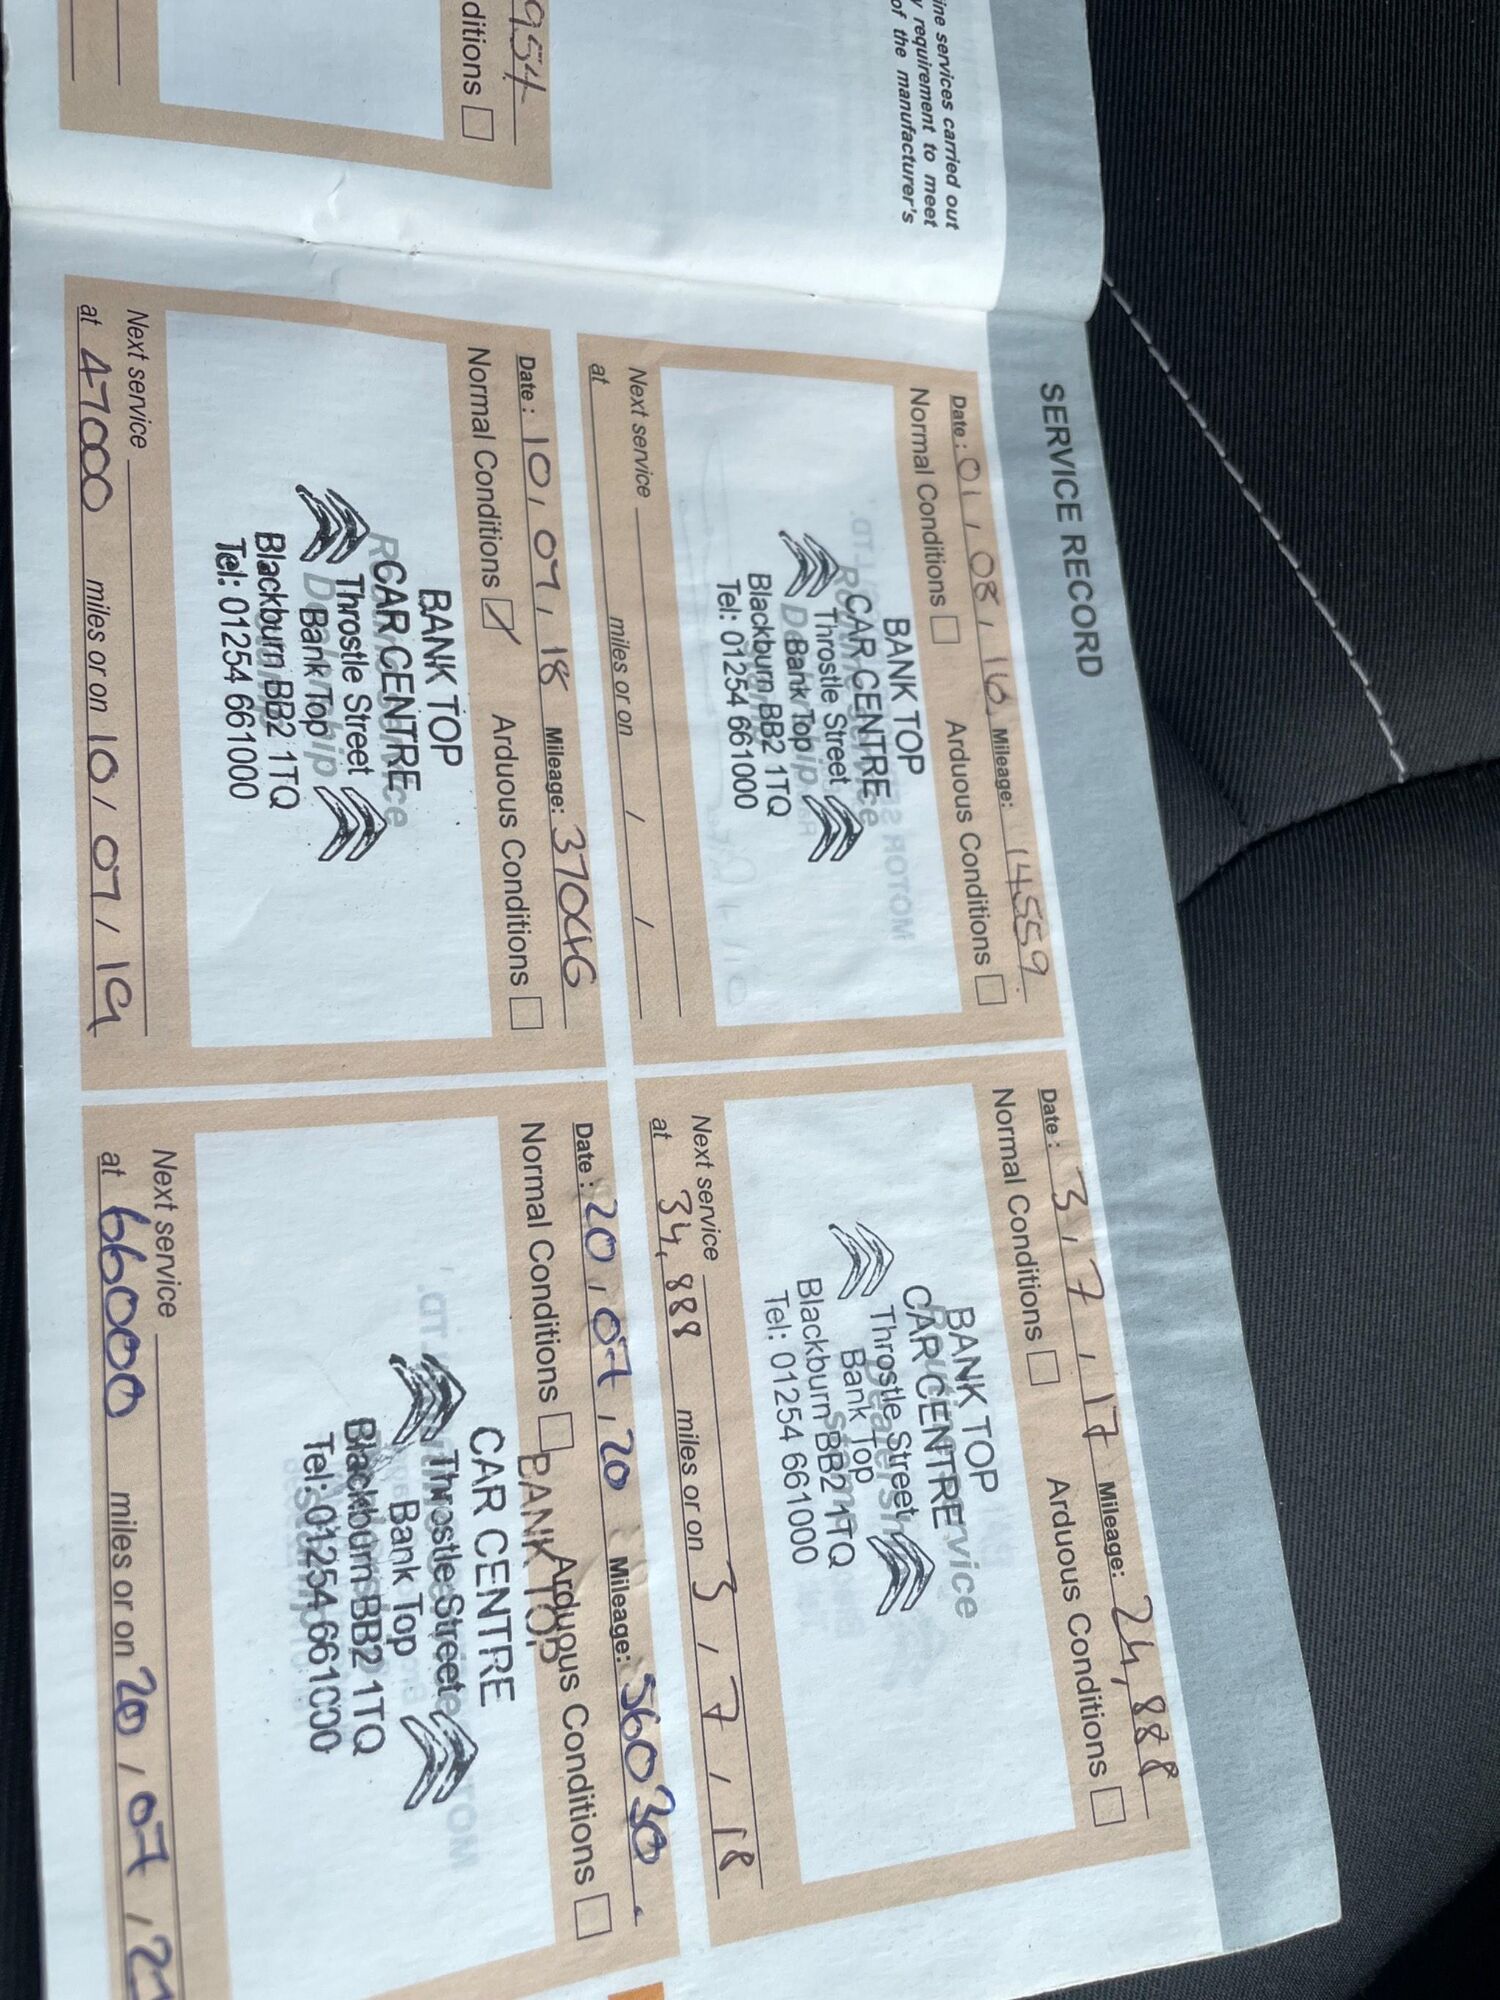 ine services carried out
y requirement to meet
of the manufacturer's
954
ditions
SERVICE RECORD
Date: 01 / 08 / 16 Mileage: 14559
Normal Conditions Arduous Conditions
BANK TOP
CAR CENTRE
Throstle Street
Bank Top
Blackburn BB2 1TQ
Tel: 01254 661000
Next service
at miles or on / /
Date: 3 / 7 / 17 Mileage: 24,888
Normal Conditions Arduous Conditions
BANK TOP
CAR CENTRE
Throstle Street
Bank Top
Blackburn BB2 1TQ
Tel: 01254 661000
Next service
at 34,888 miles or on 3 / 7 / 18
Date: 10 / 07 / 18 Mileage: 37046
Normal Conditions Arduous Conditions
BANK TOP
CAR CENTRE
Throstle Street
Bank Top
Blackburn BB2 1TQ
Tel: 01254 661000
Next service
at 47000 miles or on 10 / 07 / 19
Date: 20 / 07 / 20 Mileage: 56030
Normal Conditions Arduous Conditions
BANK TOP
CAR CENTRE
Throstle Street
Bank Top
Blackburn BB2 1TQ
Tel: 01254 661000
Next service
at 66000 miles or on 20 / 07 / 21